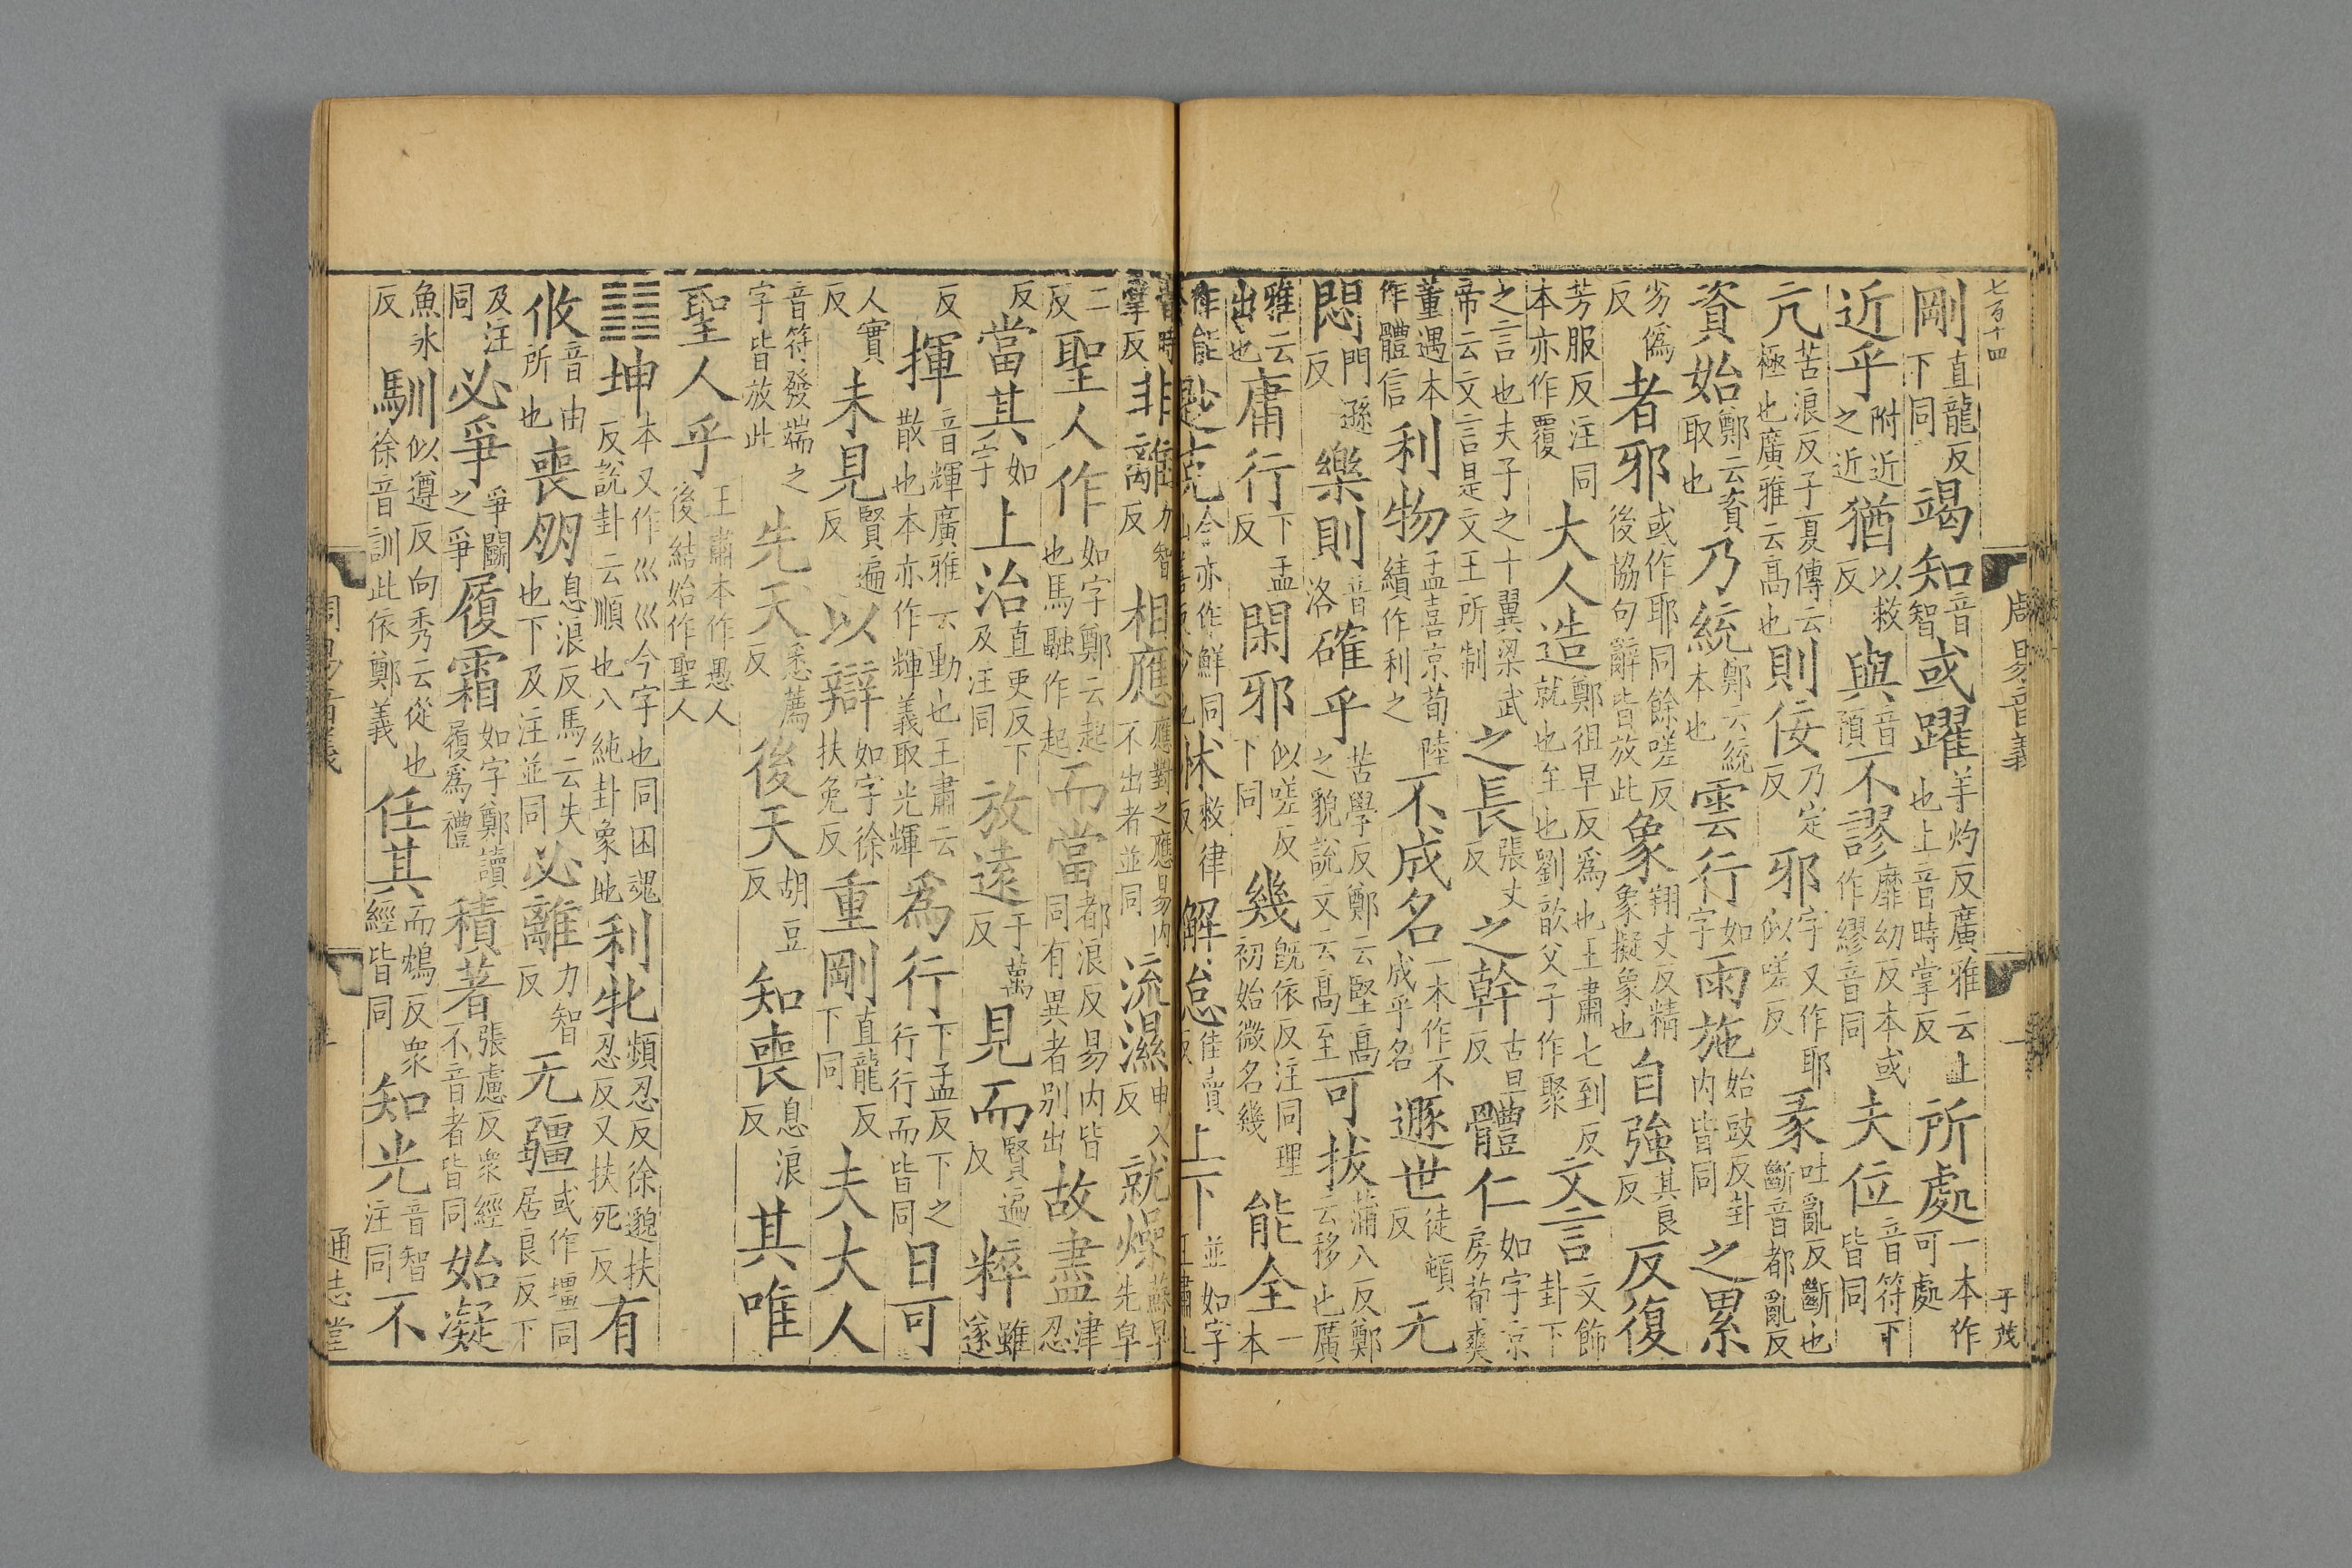 七百十四
周易音義
一
于茂
剛直龍反下同竭知音智或躍羊灼反廣雅云上也上音時掌反所處一本作可處
近乎附近之近猶以救反與音預不謬靡幼反本或作繆音同夫位音符下皆同
亢苦浪反子夏傳云極也廣雅云高也則佞乃定反邪字又作耶似嗟反彖吐亂反斷也斷音都亂反
資始鄭云資取也乃統鄭云統本也雲行如字雨施始豉反卦内皆同之累
劣僞反者邪或作耶同餘嗟反後協句辭皆放此象翔丈反精象擬象也自強其良反反復
芳服反注同本亦作覆大人造鄭徂早反爲也王肅七到反就也至也劉歆父子作聚文言文飾卦下
之言也夫子之十翼梁武帝云文言是文王所制之長張丈反之幹古旦反體仁如字京房荀爽
董遇本作體信利物孟喜京荀陸績作利之不成名一本作不成乎名遯世徒頓反无
悶門遜反樂則音洛確乎苦學反鄭云堅高之貌說文云高至可拔蒲八反鄭云移也廣
雅云出也庸行下孟反閑邪似嗟反下同幾旣依反注同理初始微名幾能全一本
作能尟克亦作鮮同怵敕律反解怠佳賣反上下並如字王肅上
音時掌反非離力智反相應應對之應易内不出者並同流濕申入反就燥蘇早反先皁
二反聖人作如字鄭云起也馬融作起而當都浪反易内皆同有異者別出故盡津忍
反當其如字上治直吏反下及注同放遠于萬反見而賢遍反粹雖遂
反揮音輝廣雅云動也王肅云散也本亦作輝義取光輝爲行下孟反下之行行而皆同日可
人實反未見賢遍反以辯如字徐扶免反重剛直龍反下同夫大人
音符發端之字皆放此先天悉薦反後天胡豆反知喪息浪反其唯
聖人乎王肅本作愚人後結始作聖人
䷁坤本又作巛巛今字也同困魂反說卦云順也八純卦象地利牝頻忍反徐邈扶忍反又扶死反有
攸音由所也喪朋息浪反馬云失也下及注並同必離力智反无疆或作壃同居良反下
及注同必爭爭鬭之爭履霜如字鄭讀履爲禮積著張慮反衆經不音者皆同始凝
魚冰反馴似遵反向秀云從也徐音訓此依鄭義任其而鴆反衆經皆同知光音智注同不
周易音義
通志堂